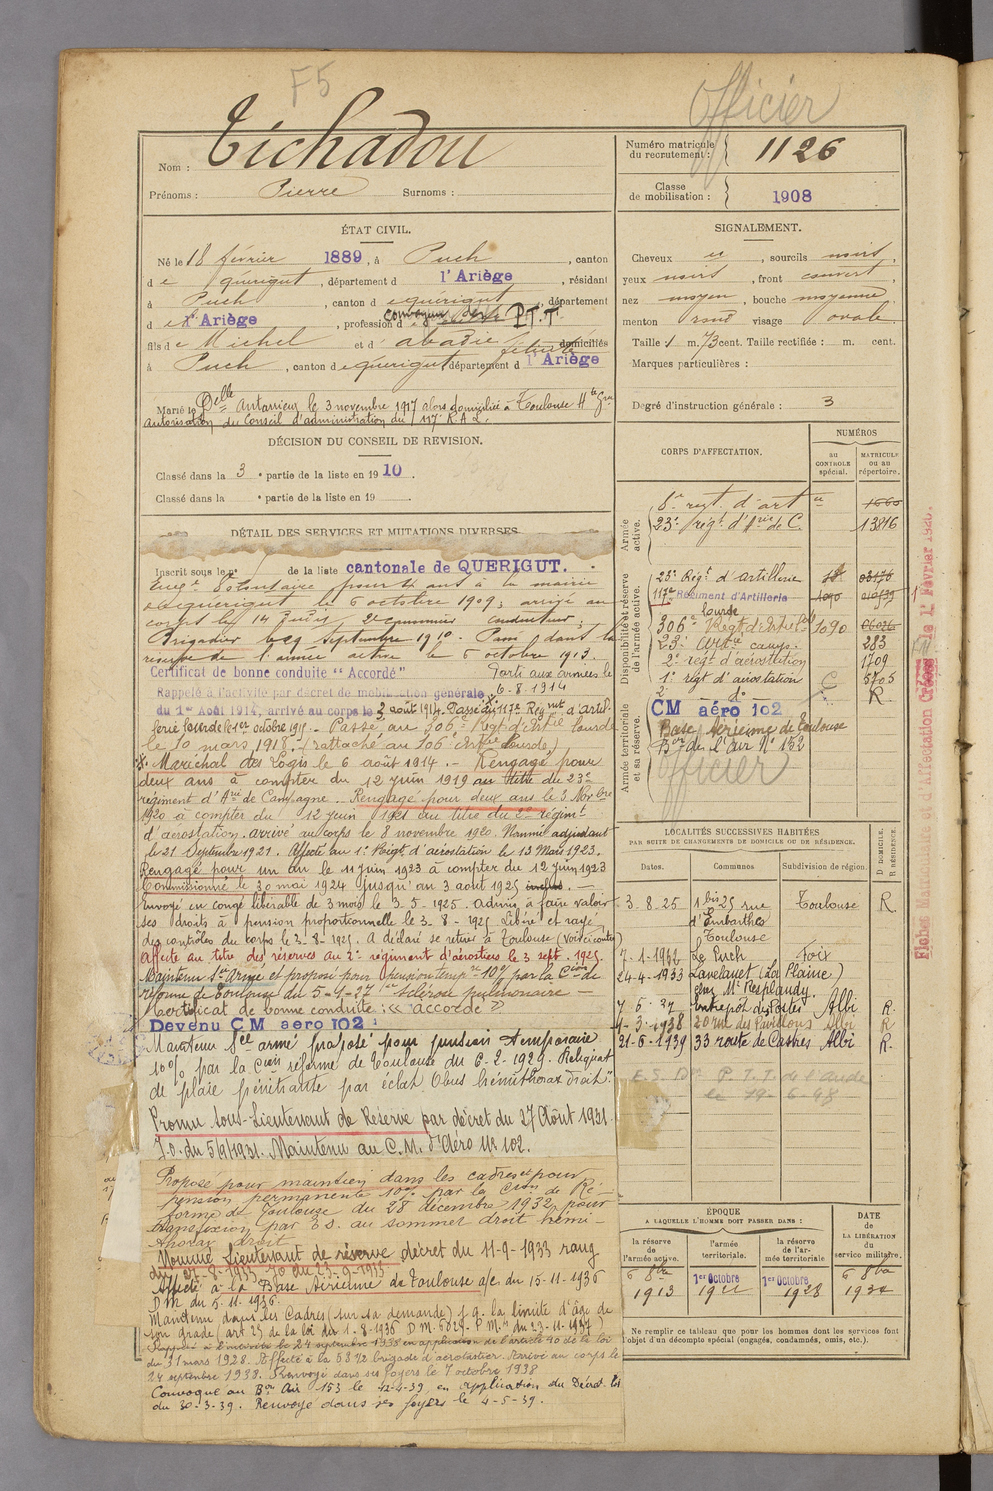 F5
Officier
Nom : Tichadou
Prénoms : Pierre Surnoms :
Numéro matricule du recrutement : 1126
Classe de mobilisation : 1908
ÉTAT CIVIL.
Né le 18 février 1889, à Puch, canton
d e quérigut, département d l'Ariège, résidant
à Puch, canton d e quérigut, département
d l'Ariège, profession d convoyeur des P.T.T.
fils d e Michel et d' abadie domiciliés
à Puch, canton d e quérigut département d l'Ariège
Marié le Delle Antarrieu le 3 novembre 1917 alors domiciliée à Toulouse Hte Gne
autorisation du Conseil d'administration du 117e R.A.L.
SIGNALEMENT.
Cheveux , sourcils noirs,
yeux noirs, front couvert,
nez moyen, bouche moyenne
menton rond visage ovale.
Taille 1 m. 73 cent. Taille rectifiée : m. cent.
Marques particulières :
Degré d'instruction générale : 3
DÉCISION DU CONSEIL DE REVISION.
Classé dans la 3e partie de la liste en 1910.
Classé dans la e partie de la liste en 19 .
DÉTAIL DES SERVICES ET MUTATIONS DIVERSES.
Inscrit sous le n° de la liste cantonale de QUERIGUT.
Engé Volontaire pour 4 ans à la mairie
de quérigut le 6 octobre 1909; arrivé au
corps le 14 2e canonnier conducteur;
Brigadier le 29 septembre 1910. Passé dans la
réserve de l'armée active le 6 octobre 1913.
Certificat de bonne conduite "Accordé" Parti aux armées le
Rappelé à l'activité par décret de mobilisation générale 6-8-1914
du 1er Août 1914, arrivé au corps le 3 août 1914. Passé au 117e Régnt d'Artil-
lerie lourde le 1er octobre 1915. - Passé au 306e Régt d'Artie lourde
le 10 mars 1918. (rattaché au 106e Artie Lourde)
Maréchal des Logis le 6 août 1914. - Rengagé pour
deux ans à compter du 12 juin 1919 au titre du 23e
régiment d'Arie de Campagne. Rengagé pour deux ans le 3 Novbre
1920 à compter du 12 juin 1921 au titre du 2e régimt
d'aérostation. arrivé au corps le 8 novembre 1920. Nommé adjudant
le 21 Septembre 1921. Affecté au 1er Régt d'aérostation le 13 Mars 1923.
Rengagé pour un an le 11 juin 1923 à compter du 12 juin 1923
Commissionné le 30 mai 1924 jusqu'au 3 août 1925 inclus. -
Envoyé en congé libérable de 3 mois le 3-5-1925. Admis à faire valoir
ses droits à pension proportionnelle le 3-8-1925. Libéré et rayé
des contrôles du corps le 3-8-1925. A déclaré se retirer à Toulouse (voir ci contre)
Affecté au titre des réserves au 2e régiment d'aérostiers le 3 sept. 1925.
Maintenu Sce Armé et proposé pour pension tempre 10% par la Con de
réforme de Toulouse du 5-4-27 sclérose pulmonaire -
Certificat de bonne conduite : "accordé"
Devenu CM aero 102 :
Maintenu Sce armé proposé pour pension temporaire
10% par la Con réforme de Toulouse du 6-2-1929. Reliquat
de plaie pénétrante par éclat Obus hémithorax droit".
Promu sous-Lieutenant de Réserve par décret du 27 Août 1931
J.O. du 5/9/1931. Maintenu au C.M. d'Aéro N° 102.
Proposé pour maintien dans les cadres et pour
pension permanente 10% par la Con de Ré-
forme de Toulouse du 28 décembre 1932 pour
transfixion par E.O. au sommet droit hémi-
thorax droit
Nommé Lieutenant de réserve décret du 11-9-1933 rang
du 27-8-1933 J.O du 23-9-1933
Affecté à la Base Aérienne de Toulouse a/c. du 15-11-1936
D.M du 5-11-1936.
Maintenu dans les Cadres (sur sa demande) j.q. la limite d'âge de
son grade (art 25 de la loi du 1-8-1936 D.M. 5029 P.M. du 23-11-1937)
Rappelé à l'activité le 24 septembre 1938 en application de l'article 40 de la loi
du 31 mars 1928. Affecté à la 58 1/2 brigade d'aérostatier. Arrivé au corps le
24 septembre 1938. Renvoyé dans ses foyers le 7 octobre 1938
Convoqué au Bon Air 153 le 12-4-39, en application du Décret loi
du 30-3-39. Renvoyé dans ses foyers le 4-5-39.
CORPS D'AFFECTATION.
NUMÉROS
AU CONTROLE spécial.
MATRICULE ou au répertoire.
Armée active.
régt d'art ie 1660
23e Régt d'Arie de C. 13816
Disponibilité et réserve de l'armée active.
23e Régt d'artillerie
117e Régiment d'Artillerie lourde 1090
306e Régt d'Artie 1090
23e Artie camp. 283
2e régt d'aérostation 1709
1er régt d'aérostation C 5705
2e do R.
Armée territoriale et sa réserve.
CM aéro 102
Base Aérienne de Toulouse
Bon de l'Air N° 152
Officier
LOCALITÉS SUCCESSIVES HABITÉES
PAR SUITE DE CHANGEMENTS DE DOMICILE OU DE RÉSIDENCE.
Dates. Communes Subdivision de région. D DOMICILE. R RÉSIDENCE.
3.8.25 1 bis 25 rue d'Embarthes Toulouse Toulouse R.
7-1-1932 Le Puch Foix
24-4-1933 Lavelanet (La Plaine) chez Mr Resplandy.
7-6-37 Entrepôt des Postes Albi R.
4-3-1938 20 rue des Pavillons Albi R
21-6-1939 33 route de Castres Albi R.
E.S. Don P.T.T. de l'Aude
le 19-6-48
ÉPOQUE
A LAQUELLE L'HOMME DOIT PASSER DANS :
la réserve de l'armée active. l'armée territoriale. la réserve de l'armée territoriale.
DATE de LA LIBÉRATION du service militaire.
6 8bre 1913
1er Octobre
1er Octobre 1928
6 8bre 1934
Ne remplir ce tableau que pour les hommes dont les services font
l'objet d'un décompte spécial (engagés, condamnés, omis, etc.).
Fiches Matricule et d'Affectation Créées le 1er Février 1926.